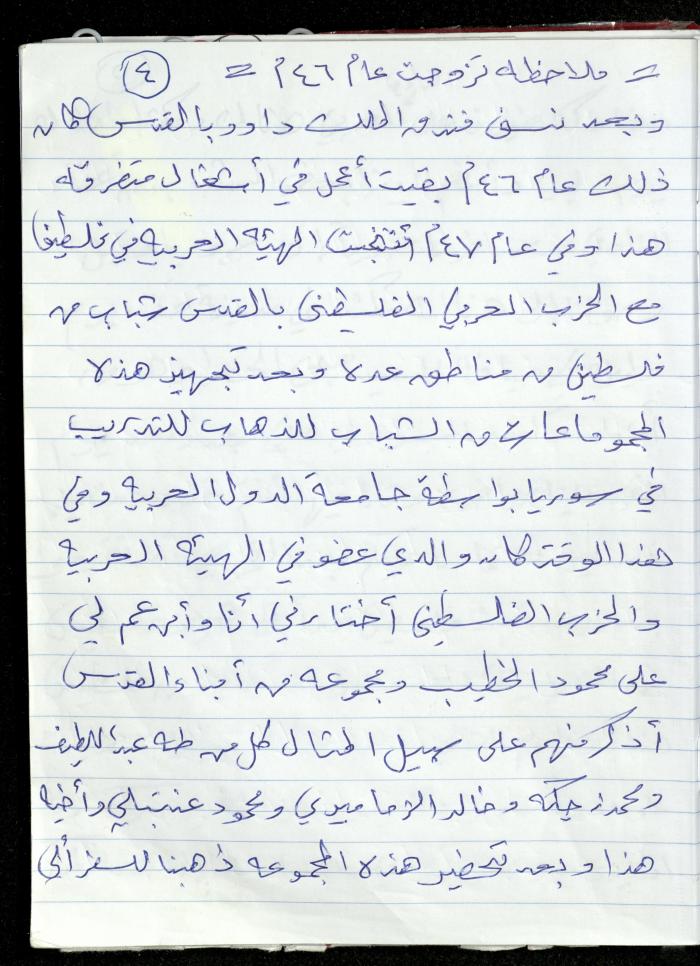 = ملاحظه تزوجت عام ٤٦م = ٤
وبعد نسف فندق الملك داوود بالقدس كان
ذلك عام ٤٦م بقيت أعمل في أشغال متفرقه
هذا وفي عام ٤٧م انتخبت الهيئه العربيه في فلسطين
مع الحزب العربي الفلسطيني بالقدس شباب من
فلسطين من مناطق عده وبعد تجهيز هذه
المجموعات من الشباب للذهاب للتدريب
في سوريا بواسطة جامعة الدول العربيه وفي
هذا الوقت كان والدي عضو في الهيئه العربيه
والحزب الفلسطيني أختارني أنا وأبن عم لي
على محمود الخطيب ومجموعه من أبناء القدس
أذكر منهم على سبيل المثال كل من طه عبد اللطيف
ومحمد زحيكه وخالد الرماميوي ومحمود عنبتاني وأخيه
هذا وبعد تحضير هذه المجموعه ذهبنا للسفر ألى